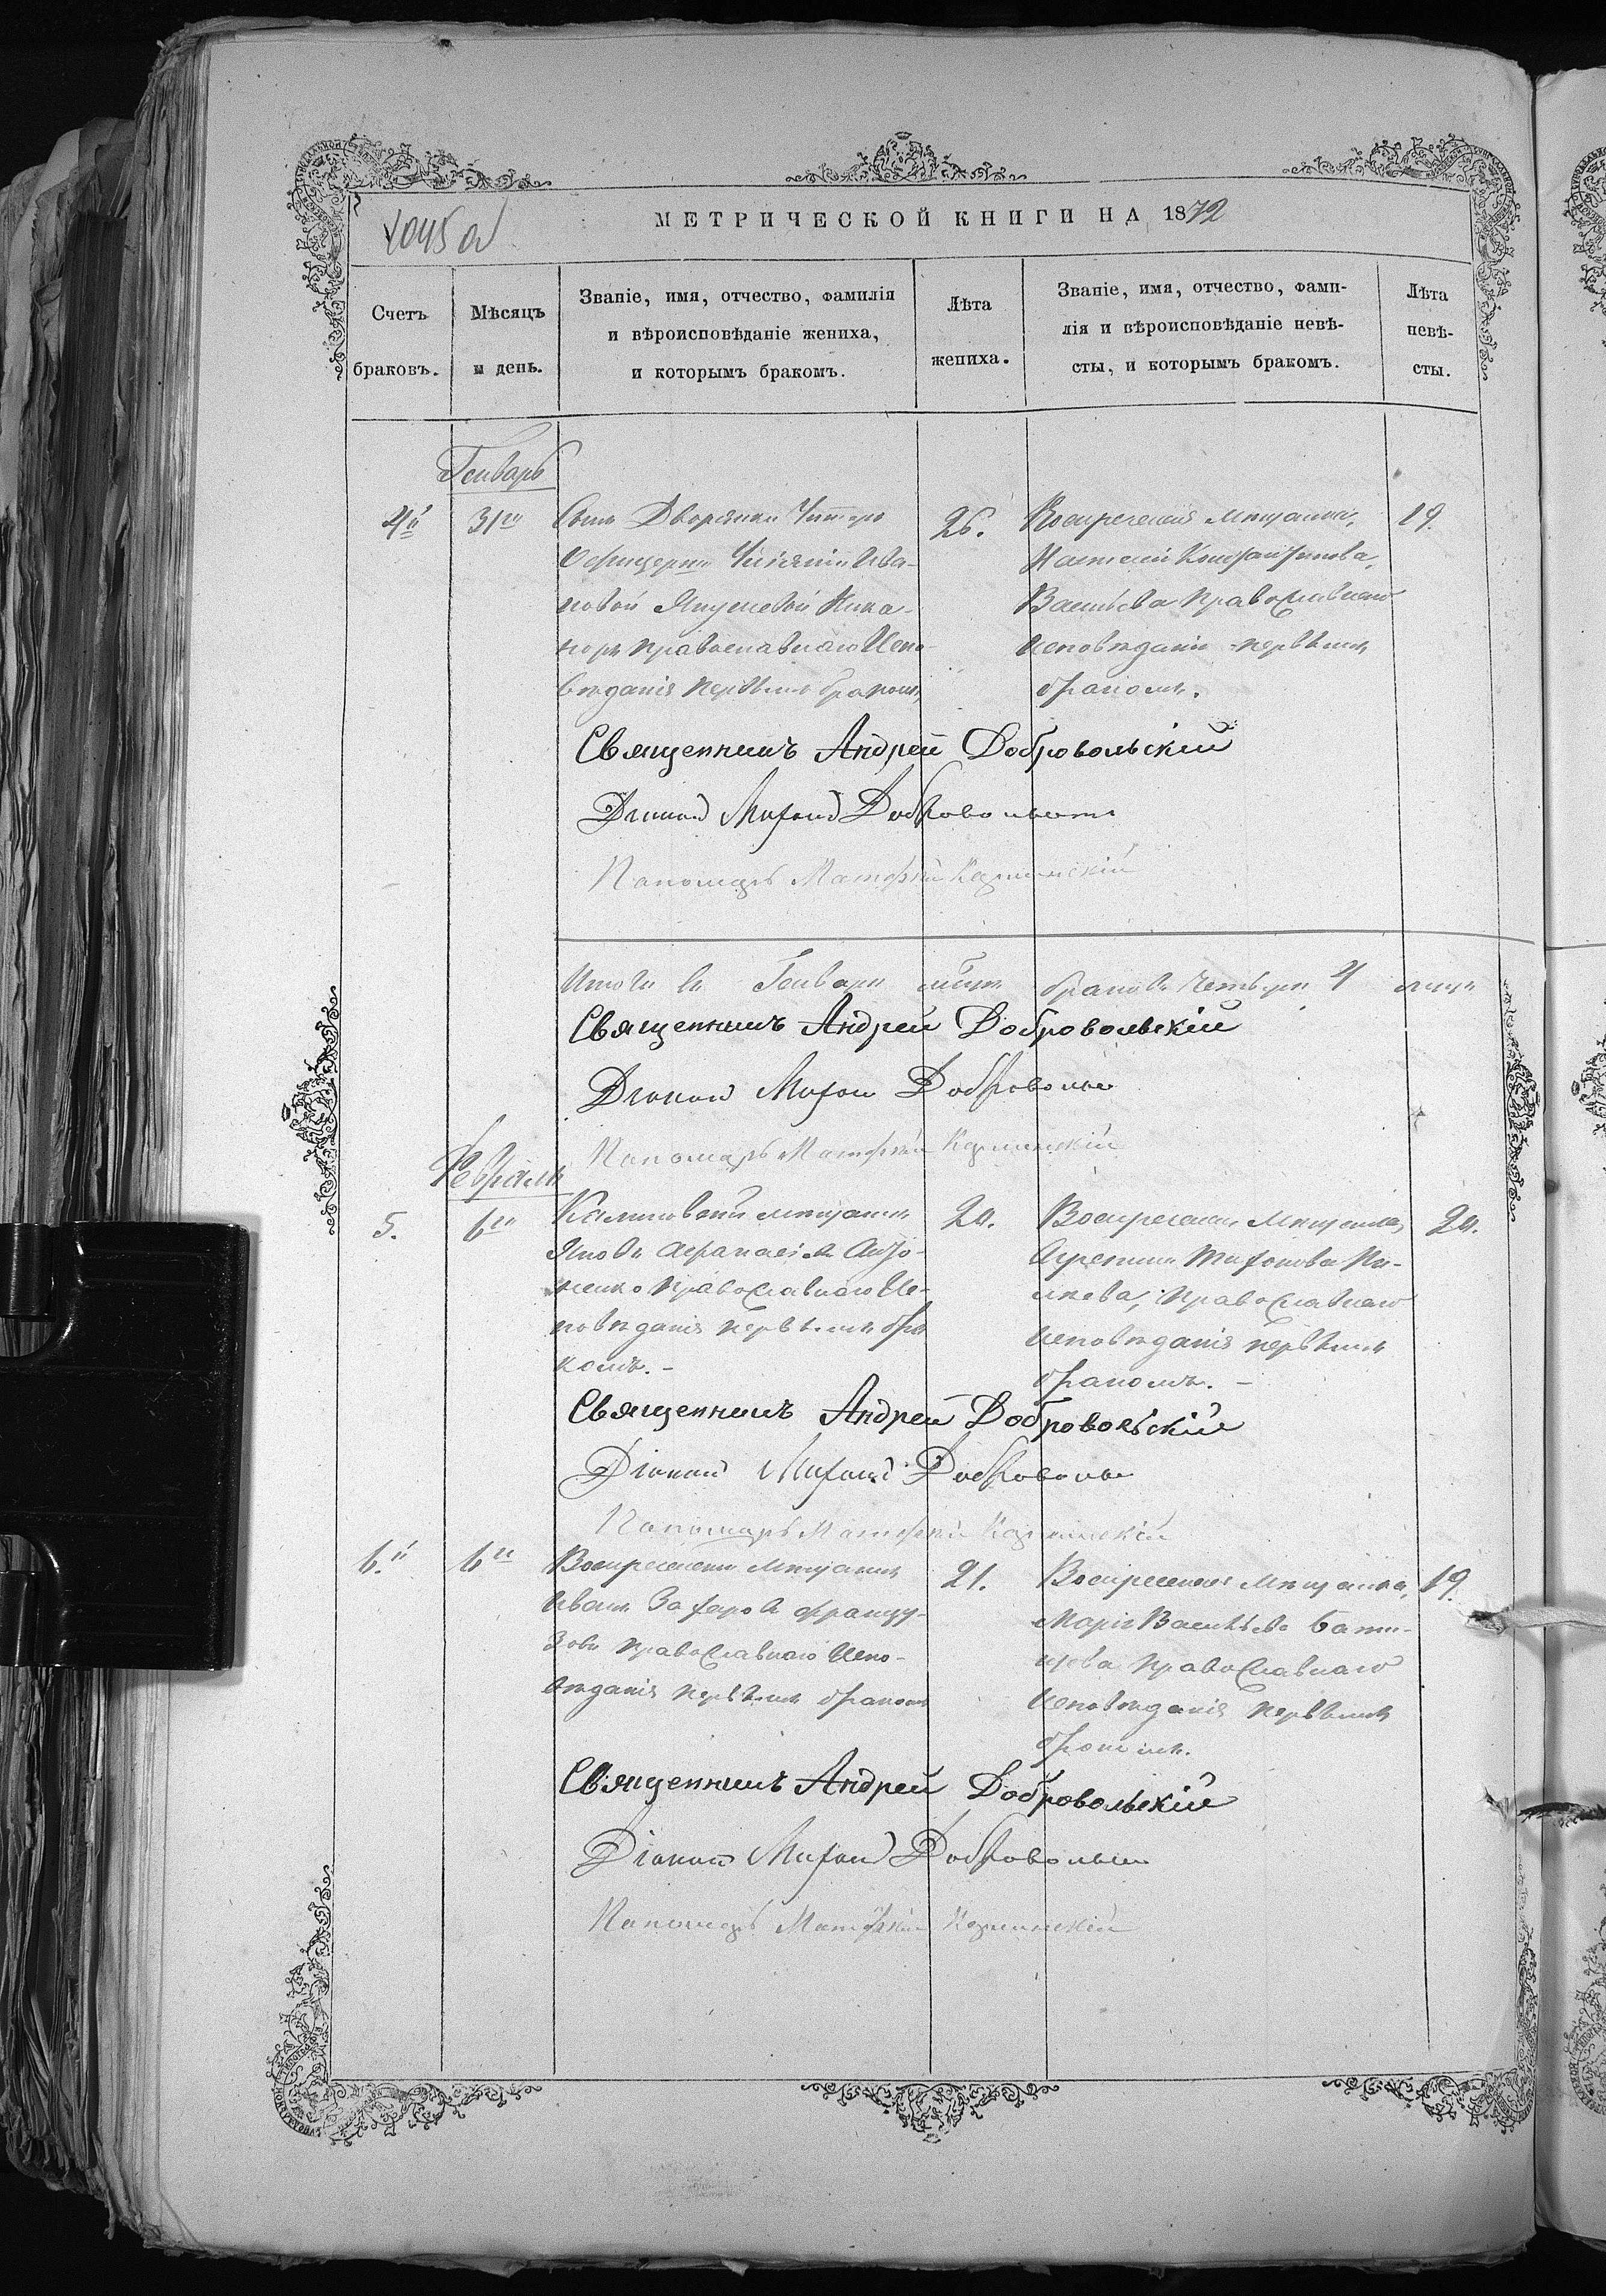 1045 об
МЕТРИЧЕСКОЙ КНИГИ НА 1872
Счетъ
браковъ.
Мѣсяцъ
и день.
Званіе, имя, отчество, фамилія
и вѣроисповѣданіе жениха,
и которымъ бракомъ.
Лѣта
жениха.
Званіе, имя, отчество, фами-
лія и вѣроисповѣданіе невѣ-
сты, и которымъ бракомъ.
Лѣта
невѣ-
сты.
Генварь
4й
31го
Сынъ Дворянки Унтеръ
Офицерши Ива-
новой Янушевой Ника-
норъ православнаго Испо-
вѣданія первымъ бракомъ,
26.
Воскресенская мѣщанка,
Наталія Константинова,
Васильева Православнаго
исповѣданія первымъ
бракомъ.
19.
Священникъ Андрей Добровольскій
Діаконъ Добровольскій
Пономарь Матфей
Итого въ Генварѣ браковъ четыре 4
Священникъ Андрей Добровольскій
Діаконъ Добровольскій
Пономарь Матфей
Февраль
5.
6го
мѣщанинъ
Яковъ Афанасіевъ
Православнаго Ис-
повѣданія первымъ бра
комъ. -
Воскресенская Мѣщанка,
Агрепина Тихонова
Православнаго
исповѣданія первымъ
бракомъ. -
Священникъ Андрей Добровольскій
Діаконъ Добровольскій
Пономарь Матфей
6.й
6го
Воскресенскій мѣщанинъ
Иванъ Захаровъ Францу-
зовъ Православнаго Испо-
вѣданія первымъ бракомъ
21.
Воскресенская Мѣщанка,
Марія Васильева
Православнаго
исповѣданія первымъ
бракомъ.
19.
Священникъ Андрей Добровольскій
Діаконъ Добровольскій
Пономарь Матфей